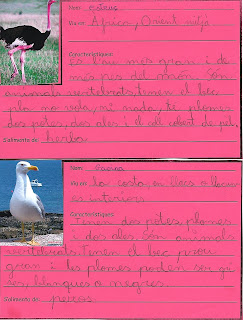 Nom: Estruç
Viu a: Àfrica, Orient mitjà
Característiques:
És l'au més gran i de
més pes del món. Són
animals vertebrats, tenen el bec
pla no vola, ni nada, té plomes
dos potes, dos ales i el cos cobert de pèl.
S'alimenta de: herba
Nom: Gavina
Viu a: la costa, en llacs o llacunes
interiors
Característiques:
Tenen dos potes, plomes
i dos ales. Són animals
vertebrats. Tenen el bec prou
gran i les plomes poden ser gri
ses, blanques o negres.
S'alimenta de: peixos.